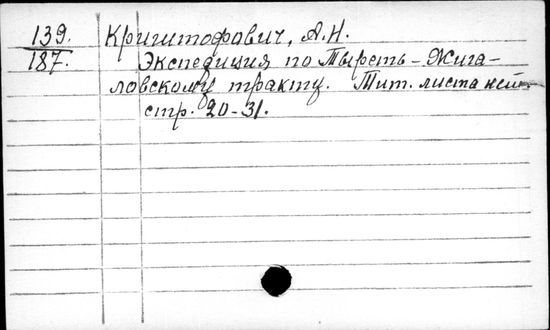 139. Криштофович, А.Н.
187. Экспедиция по Тыреть-Жига-
ловскому тракту. Тит. листа нет
стр. 20-31.